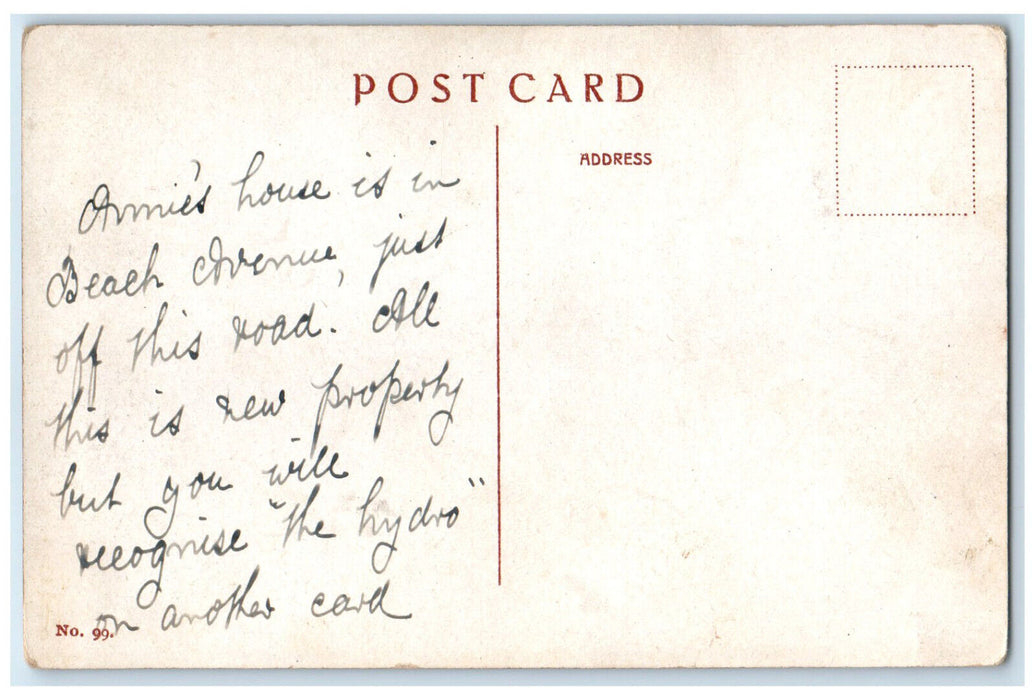 POST CARD
ADDRESS
Annie's house is in
Beach Avenue, just
off this road. All
this is new property
but you will
recognise "the hydro"
on another card
No. 99.